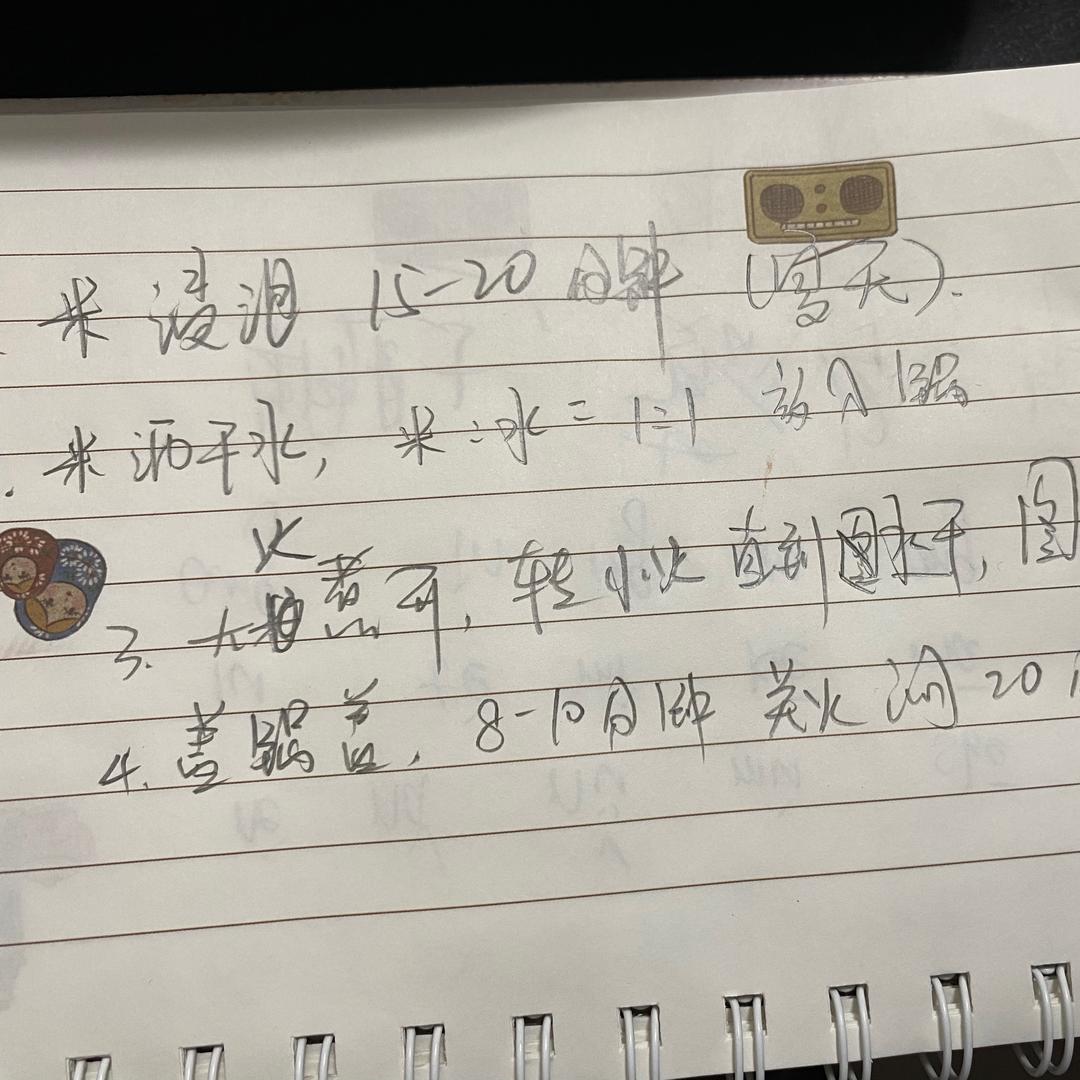 米浸泡 15-20 分钟 (夏天).
米沥干水, 米:水=1:1 放入锅
火
3. 大煮开, 转小火 直到 水干,
4. 盖锅盖, 8-10分钟 关火 焖 20